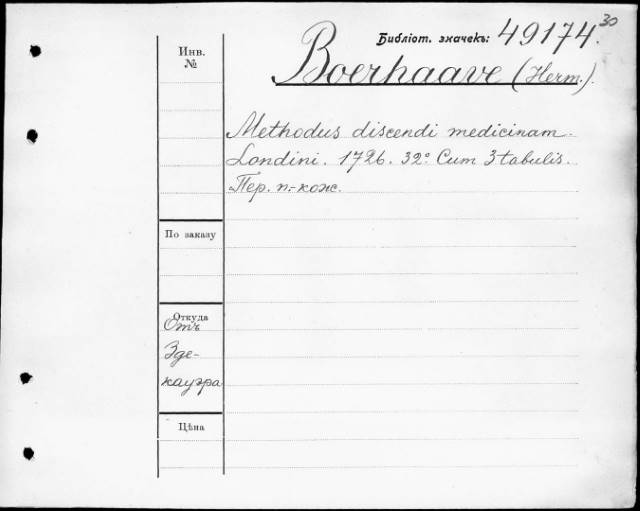 Библіот. значекъ: 49174.30
Инв. №
Boerhaave (Herm.).
Methodus discendi medicinam.
Londini. 1726. 32° Cum 3 tabulis.
Пер. п.-кож.
По заказу
Откуда
Отъ
Эде-
кауэра
Цѣна